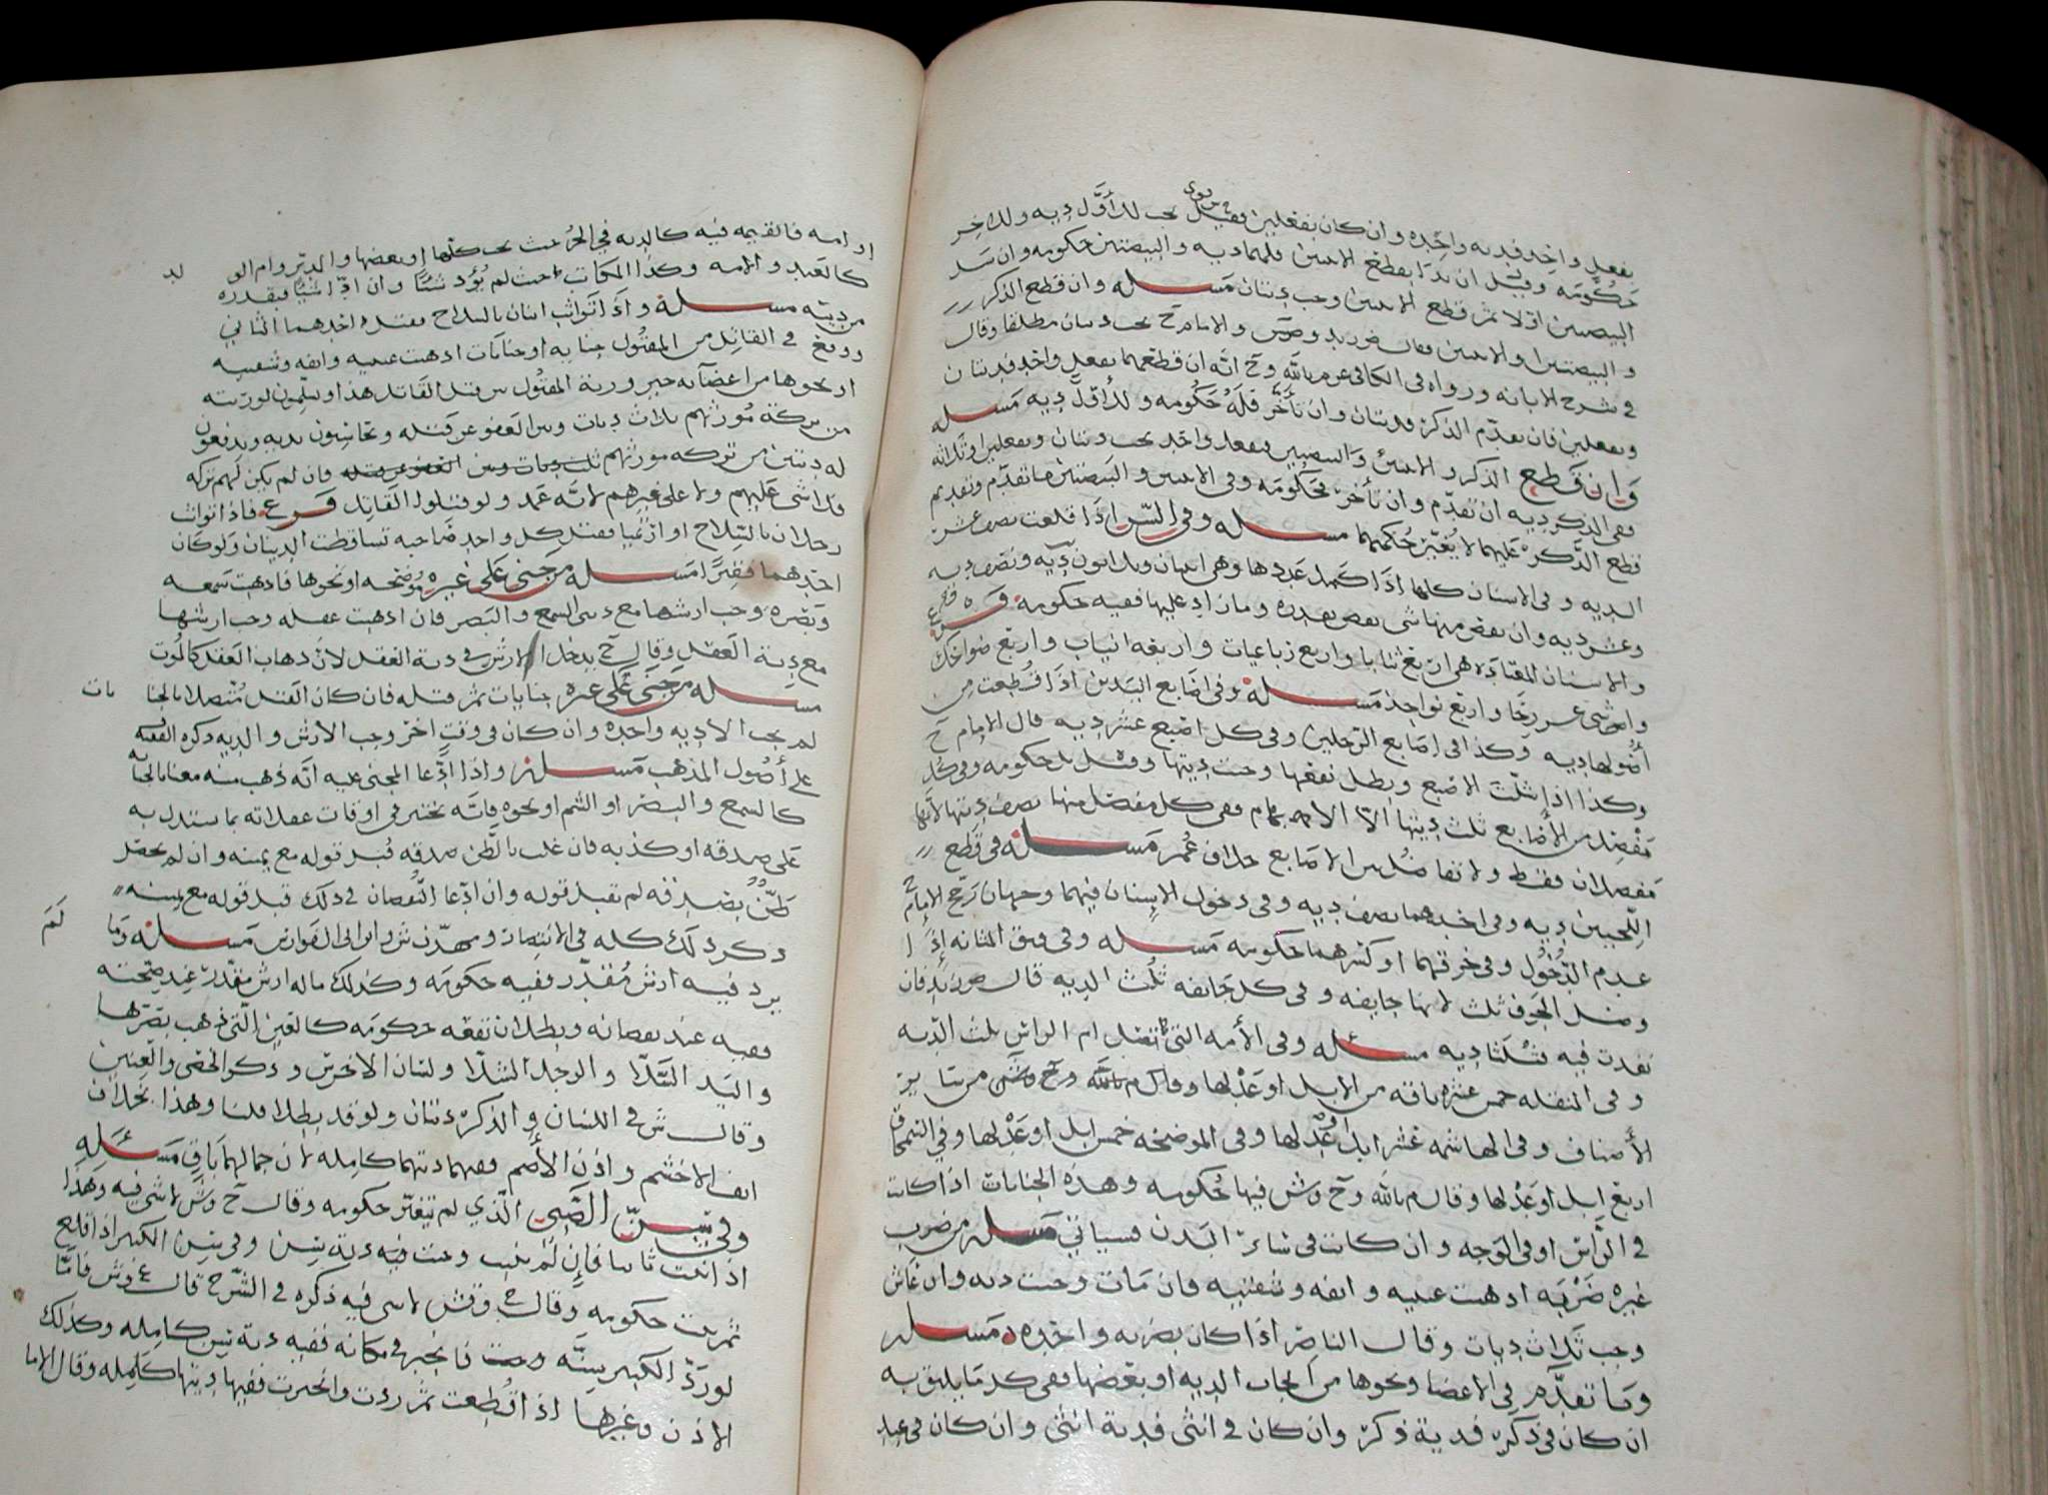 بفعل واحد فديه واحده وان كان بفعلين فقيل يجب للأول ديه وللاخر
حكومه وقيل ان بدا بقطع الانثيين فلهما ديه والبيضتين حكومه وان سل
البيضتين اولا ثم قطع الانثيين وجب ديتان مسله وان قطع الذكر
والبيضتين والانثيين والامام ح يجب ديتان مطلقا وقال
في شرح الابانه ورواه في الكافي عن م بالله وح انه ان قطعهما بفعل واحد فديتان
وبفعلين فان تقدم الذكر فديتان وان تأخر فله حكومه وللأول ديه مسله
وان قطع الذكر والانثيين والبيضتين بفعل واحد يجب ديتان وبفعلين او ثلاثه
ففي الذكر ديه ان تقدم وان تأخر فحكومه وفي الانثيين والبيضتين ما تقدم وتقديم
قطع الذكر عليهما لا يغير حكمهما مسله وفي السن اذا قلعت نصف عشر
الديه وفي الاسنان كلها اذا كمل عددها وهي اثنان وثلاثون ديه ونصف ديه
وعشر ديه وان نقص منها شي نقص بقدره وما زاد عليها ففيه حكومه فرع
والاسنان المعتاده هي اربع ثنايا واربع رباعيات واربعه انياب واربع ضواحك
واثني عشر رحا واربع نواجذ مسله وفي اصابع اليدين اذا قطعت من
أصولها ديه وكذا في اصابع الرجلين وفي كل اصبع عشر ديه قال الامام ح
وكذا اذا شلت الاصبع وبطل نفعها وجبت ديتها وقيل بل حكومه وفي كل
مفصل من الأصابع ثلث ديتها الا الابهام ففي كل مفصل منها نصف ديتها لأنها
مفصلان فقط ولا تفاضل بين الاصابع خلاف عمر مسله في قطع
اللحيين ديه وفي احدهما نصف ديه وفي دخول الاسنان فيهما وجهان رجح الامام ح
عدم الدخول وفي خرقهما او كسرهما حكومه مسله وفي فتق المثانه اذا
وصل الجوف ثلث لانها جايفه وفي كل جايفه ثلث الديه قال فان
نفدت فيه فثلثا ديه مسئله وفي الأمه التي تصل ام الراس ثلث الديه
وفي المنقله خمس عشره ناقه من الابل او عدلها وقال م بالله وح وش من ساير
الأصناف وفي الهاشمه عشر ابل او عدلها وفي الموضحه خمس ابل او عدلها وفي السمحاق
اربع ابل او عدلها وقال م بالله وح وش فيها حكومه وهذه الجنايات اذا كانت
في الراس او في الوجه وان كانت في سائر البدن فسياتي مسله من ضرب
غيره ضربه اذهبت عينيه وانفه وشفتيه فان مات وجبت ديه وان عاش
وجب ثلاث ديات وقال الناصر اذا كان بضربه واحده مسله
وما تقدم في الاعضا ونحوها من ايجاب الديه او بعضها ففي كل ما يليق به
ان كان في ذكر فدية ذكر وان كان في انثى فدية انثى وان كان في عبد
او امه فالقيمه فيه كالديه في الحر حيث يجب كلها او بعضها والمدبر وام الولد
كالعبد والامه وكذا المكاتب حيث لم يؤد شيئا وان ادى شيئا فبقدره
من ديته مسله واذا تواثب اثنان بالسلاح فقتل احدهما الثاني
ووقع في القاتل من المقتول جنايه او جنايات اذهبت عينيه وانفه وشفتيه
او نحوها من اعضآئه خير ورثة المقتول بين قتل القاتل هذا ويسلمون لورثته
من تركة مورثهم ثلاث ديات وبين العفو عن قتله ويحاسبون بديه ويدفعون
له ديتين من تركه مورثهم ثلث ديات وبين العفو عن قتله فان لم يكن لهم تركه
فلا شي عليهم ولا على غيرهم لانه عمد ولو قتلوا القاتل فرع فاذا تواثب
رجلان بالسلاح او ارتميا فقتل كل واحد صاحبه تساقطت الديتان ولو كان
احدهما فقيرا مسله من جنى على غيره موضحه او نحوها فاذهبت سمعه
وبصره وجب ارشها مع ديتي السمع والبصر فان اذهبت عقله وجب ارشها
مع دية العقل وقال ح يدخل الارش في دية العقل لان ذهاب العقل كالموت
مسله من جنى على غيره جنايات ثم قتله فان كان القتل متصلا بالجنايات
لم يجب الا ديه واحده وان كان في وقت اخر وجب الارش والديه ذكره الفقيه
على أصول المذهب مسله واذا ادعا المجني عليه انه ذهب منه معنا بالجنايه
كالسمع والبصر او الشم او نحوه فانه يختبر في اوقات غفلاته بما يستدل به
على صدقه او كذبه فان غلب بالظن صدقه قبل قوله مع يمينه وان لم يحصل
ظن بصدقه لم يقبل قوله وان ادعا النقصان في ذلك قبل قوله مع يمينه
ذكر ذلك كله في الانتصار ومهذب ش وابن ابي الفوارس مسله وما لم
يرد فيه ارش مقدر ففيه حكومه وكذلك ماله ارش مقدر عند صحته
ففيه عند نقصانه وبطلان نفعه حكومه كالعين التي ذهب بصرها
واليد الشلا والرجل الشلا ولسان الاخرس وذكر الخصي والعنين
وقال ش في اللسان والذكر ديتان ولو قد بطلا قلنا وهذا بخلاف
انف الاخشم واذن الأصم ففيهما ديتهما كامله لان جمالهما باق مسئله
وفي سن الصبي الذي لم يثغر حكومه وقال ح وش لا شي فيه وهذا
اذا نبتت ثانيا فإن لم تنبت وجبت فيه دية سن وفي سن الكبير اذا قلع
ثم نبت حكومه وقال ح وش لا شي فيه ذكره في الشرح قال ع وش فأما
لو رد الكبير سنه فانجبر في مكانه ففيه دية سن كامله وكذلك
الاذن وغيرها اذا قطعت ثم ردت وانجبرت ففيها ديتها كامله وقال الاما